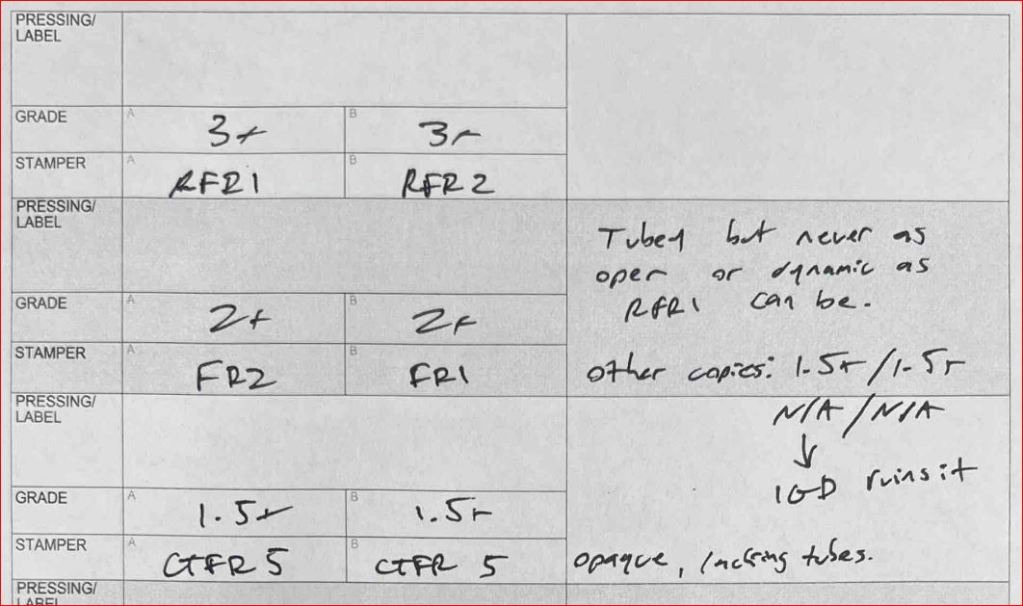 PRESSING/
LABEL
GRADE A 3+ B 3+
STAMPER A RFR1 B RFR2
PRESSING/
LABEL
Tubey but never as
open or dynamic as
RFR1 can be.
GRADE A 2+ B 2+
STAMPER A FR2 B FR1
other copies: 1.5+/1.5+
PRESSING/
LABEL
N/A / N/A
↓
IGD ruins it
GRADE A 1.5+ B 1.5+
STAMPER A CTFR 5 B CTFR 5
opaque, lacking tubes.
PRESSING/
LABEL